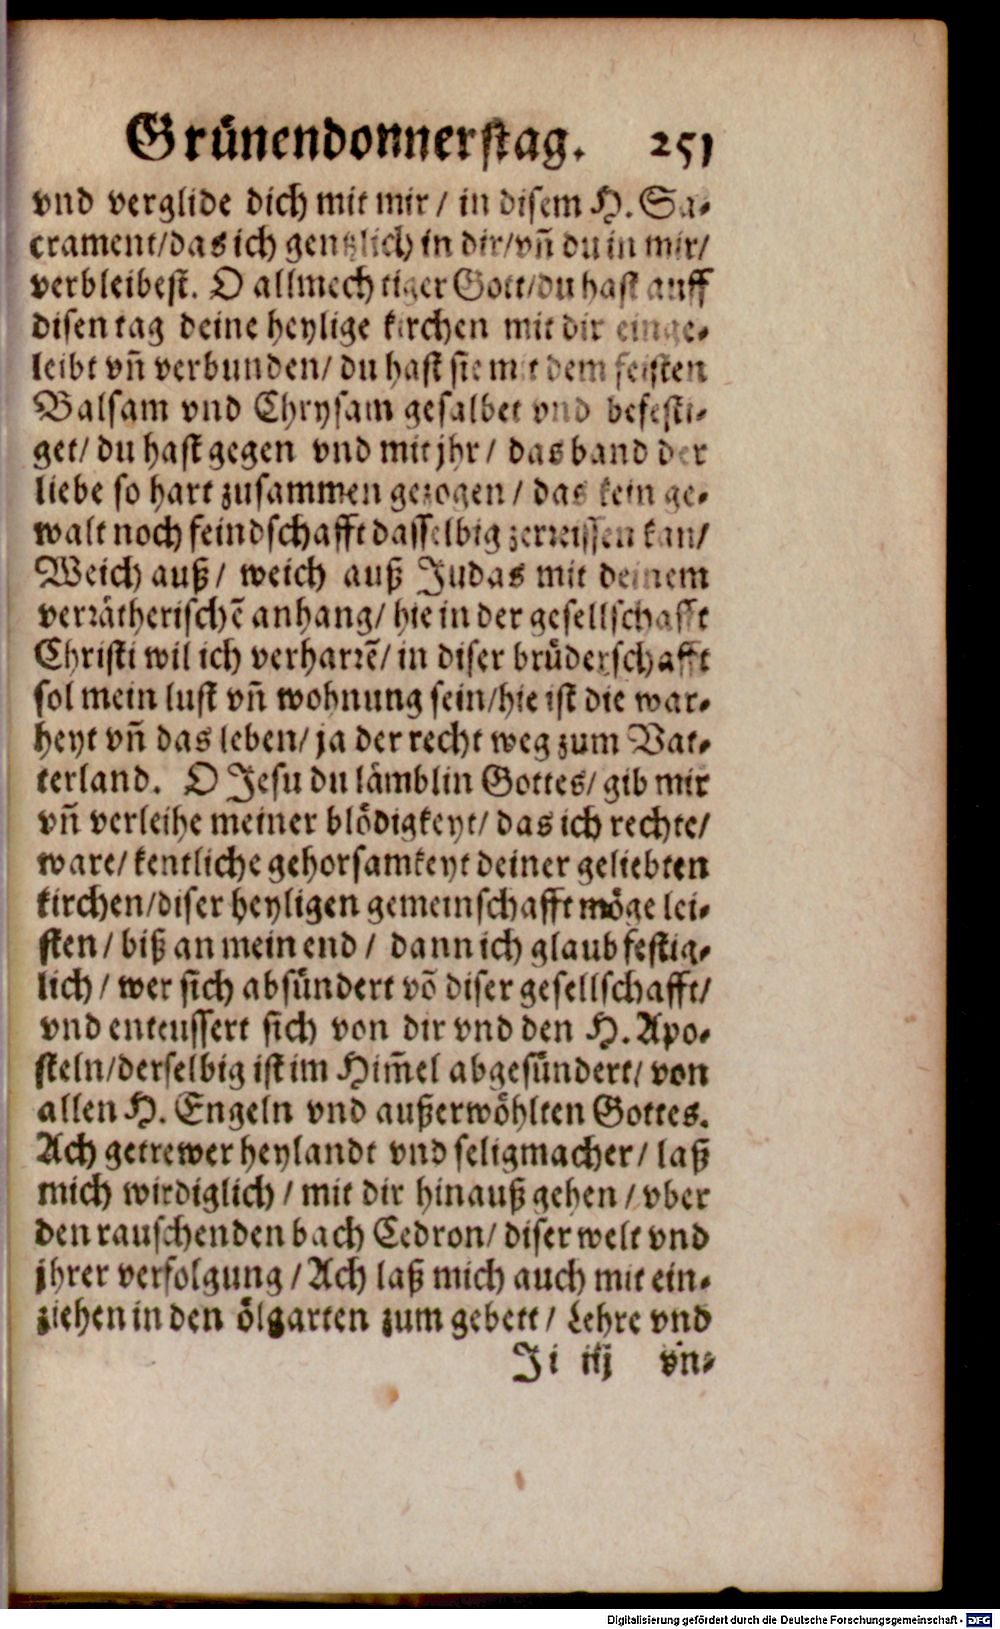 Grünendonnerstag. 251
vnd verglide dich mit mir / in disem H. Sa-
crament/das ich gentzlich in dir/vñ du in mir/
verbleibest. O allmechtiger Gott/du hast auff
disen tag deine heylige kirchen mit dir einge-
leibt vñ verbunden/ du hast sie mit dem feisten
Balsam vnd Chrysam gesalbet vnd befesti-
get/ du hast gegen vnd mit jhr / das band der
liebe so hart zusammen gezogen / das kein ge-
walt noch feindschafft dasselbig zerreissen kan/
Weich auß / weich auß Judas mit deinem
verrätherischẽ anhang/ hie in der gesellschafft
Christi wil ich verharrẽ/ in diser brüderschafft
sol mein lust vñ wohnung sein/hie ist die war-
heyt vñ das leben/ ja der recht weg zum Vat-
terland. O Jesu du lämblin Gottes/ gib mir
vñ verleihe meiner blödigkeyt/ das ich rechte/
ware/ kentliche gehorsamkeyt deiner geliebten
kirchen/diser heyligen gemeinschafft möge lei-
sten / biß an mein end / dann ich glaub festig-
lich / wer sich absündert võ diser gesellschafft/
vnd enteussert sich von dir vnd den H. Apo-
steln/derselbig ist im Him̃el abgesündert/ von
allen H. Engeln vnd außerwöhlten Gottes.
Ach getrewer heylandt vnd seligmacher / laß
mich wirdiglich / mit dir hinauß gehen / vber
den rauschenden bach Cedron/ diser welt vnd
jhrer verfolgung / Ach laß mich auch mit ein-
ziehen in den ölgarten zum gebett / Lehre vnd
Ji iij vn-
Digitalisierung gefördert durch die Deutsche Forschungsgemeinschaft - DFG